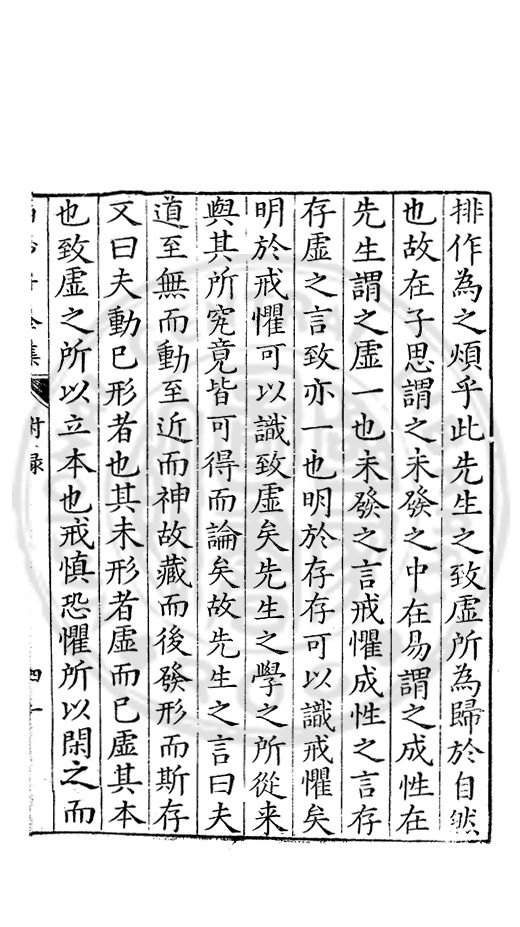 排作為之煩乎此先生之致虛所為歸於自然
也故在子思謂之未發之中在易謂之成性在
先生謂之虛一也未發之言戒懼成性之言存
存虛之言致亦一也明於存存可以識戒懼矣
明於戒懼可以識致虛矣先生之學之所從来
與其所究竟皆可得而論矣故先生之言曰夫
道至無而動至近而神故藏而後發形而斯存
又曰夫動已形者也其未形者虛而已虛其本
也致虛之所以立本也戒慎恐懼所以閑之而
集 附錄 四十